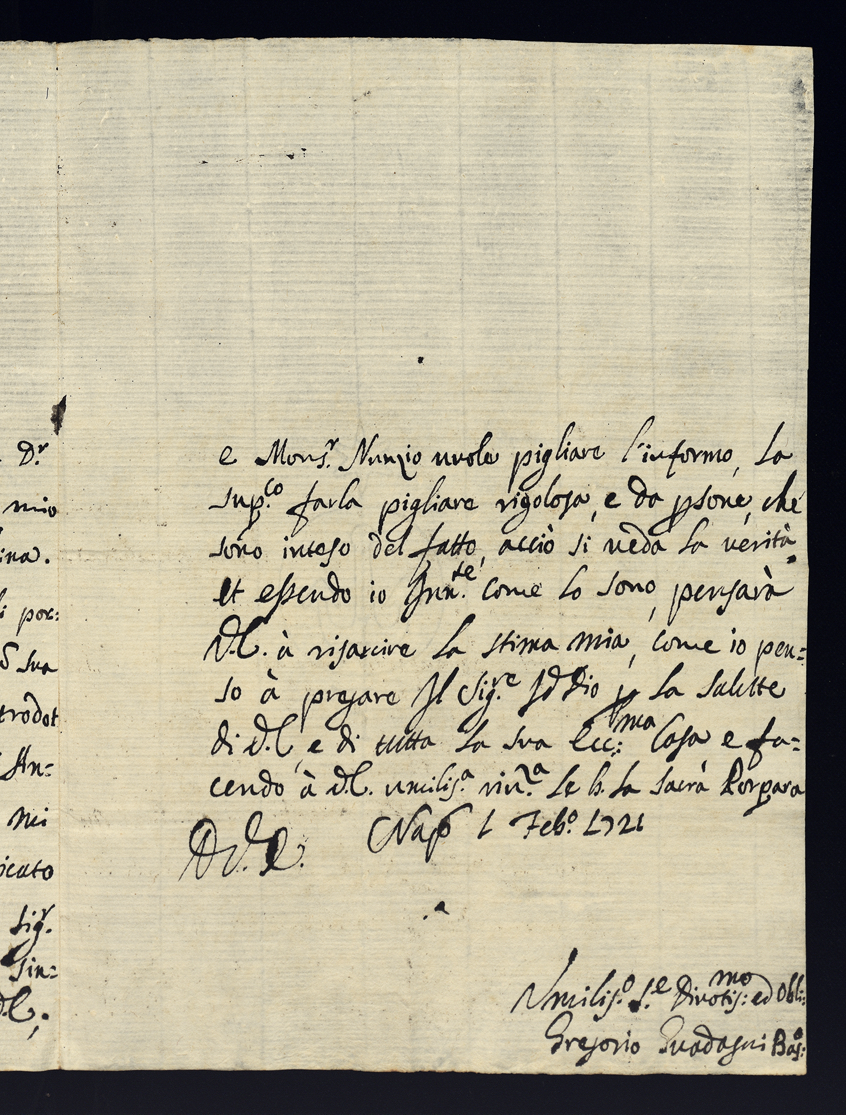 Dr.
mio
ina.
i por:
sua
trodot
An:
mi
icato
Sigr.
Sin:
e Monsr. Nunzio vuole pigliare l'informo, la
sup.co farla pigliare rigolosa, e da psone, che
sono inteso del fatto, acciò si veda la verità
et essendo io Inn.te come lo sono, pensarà
V.E. à risarcire la stima mia, come io pen=
so à pregare Il Sig.re Iddio p la salute
di V.E, e di tutta la sua Ecc:ma Casa e fa=
cendo à V.E. umilis.a riv.a le b. la sacrà Porpara
D.V.E. Nap 1 Feb.o 1721
Umilis.o S.e Divotis:mo ed Obli:
Gregorio Guadagni Bas:o